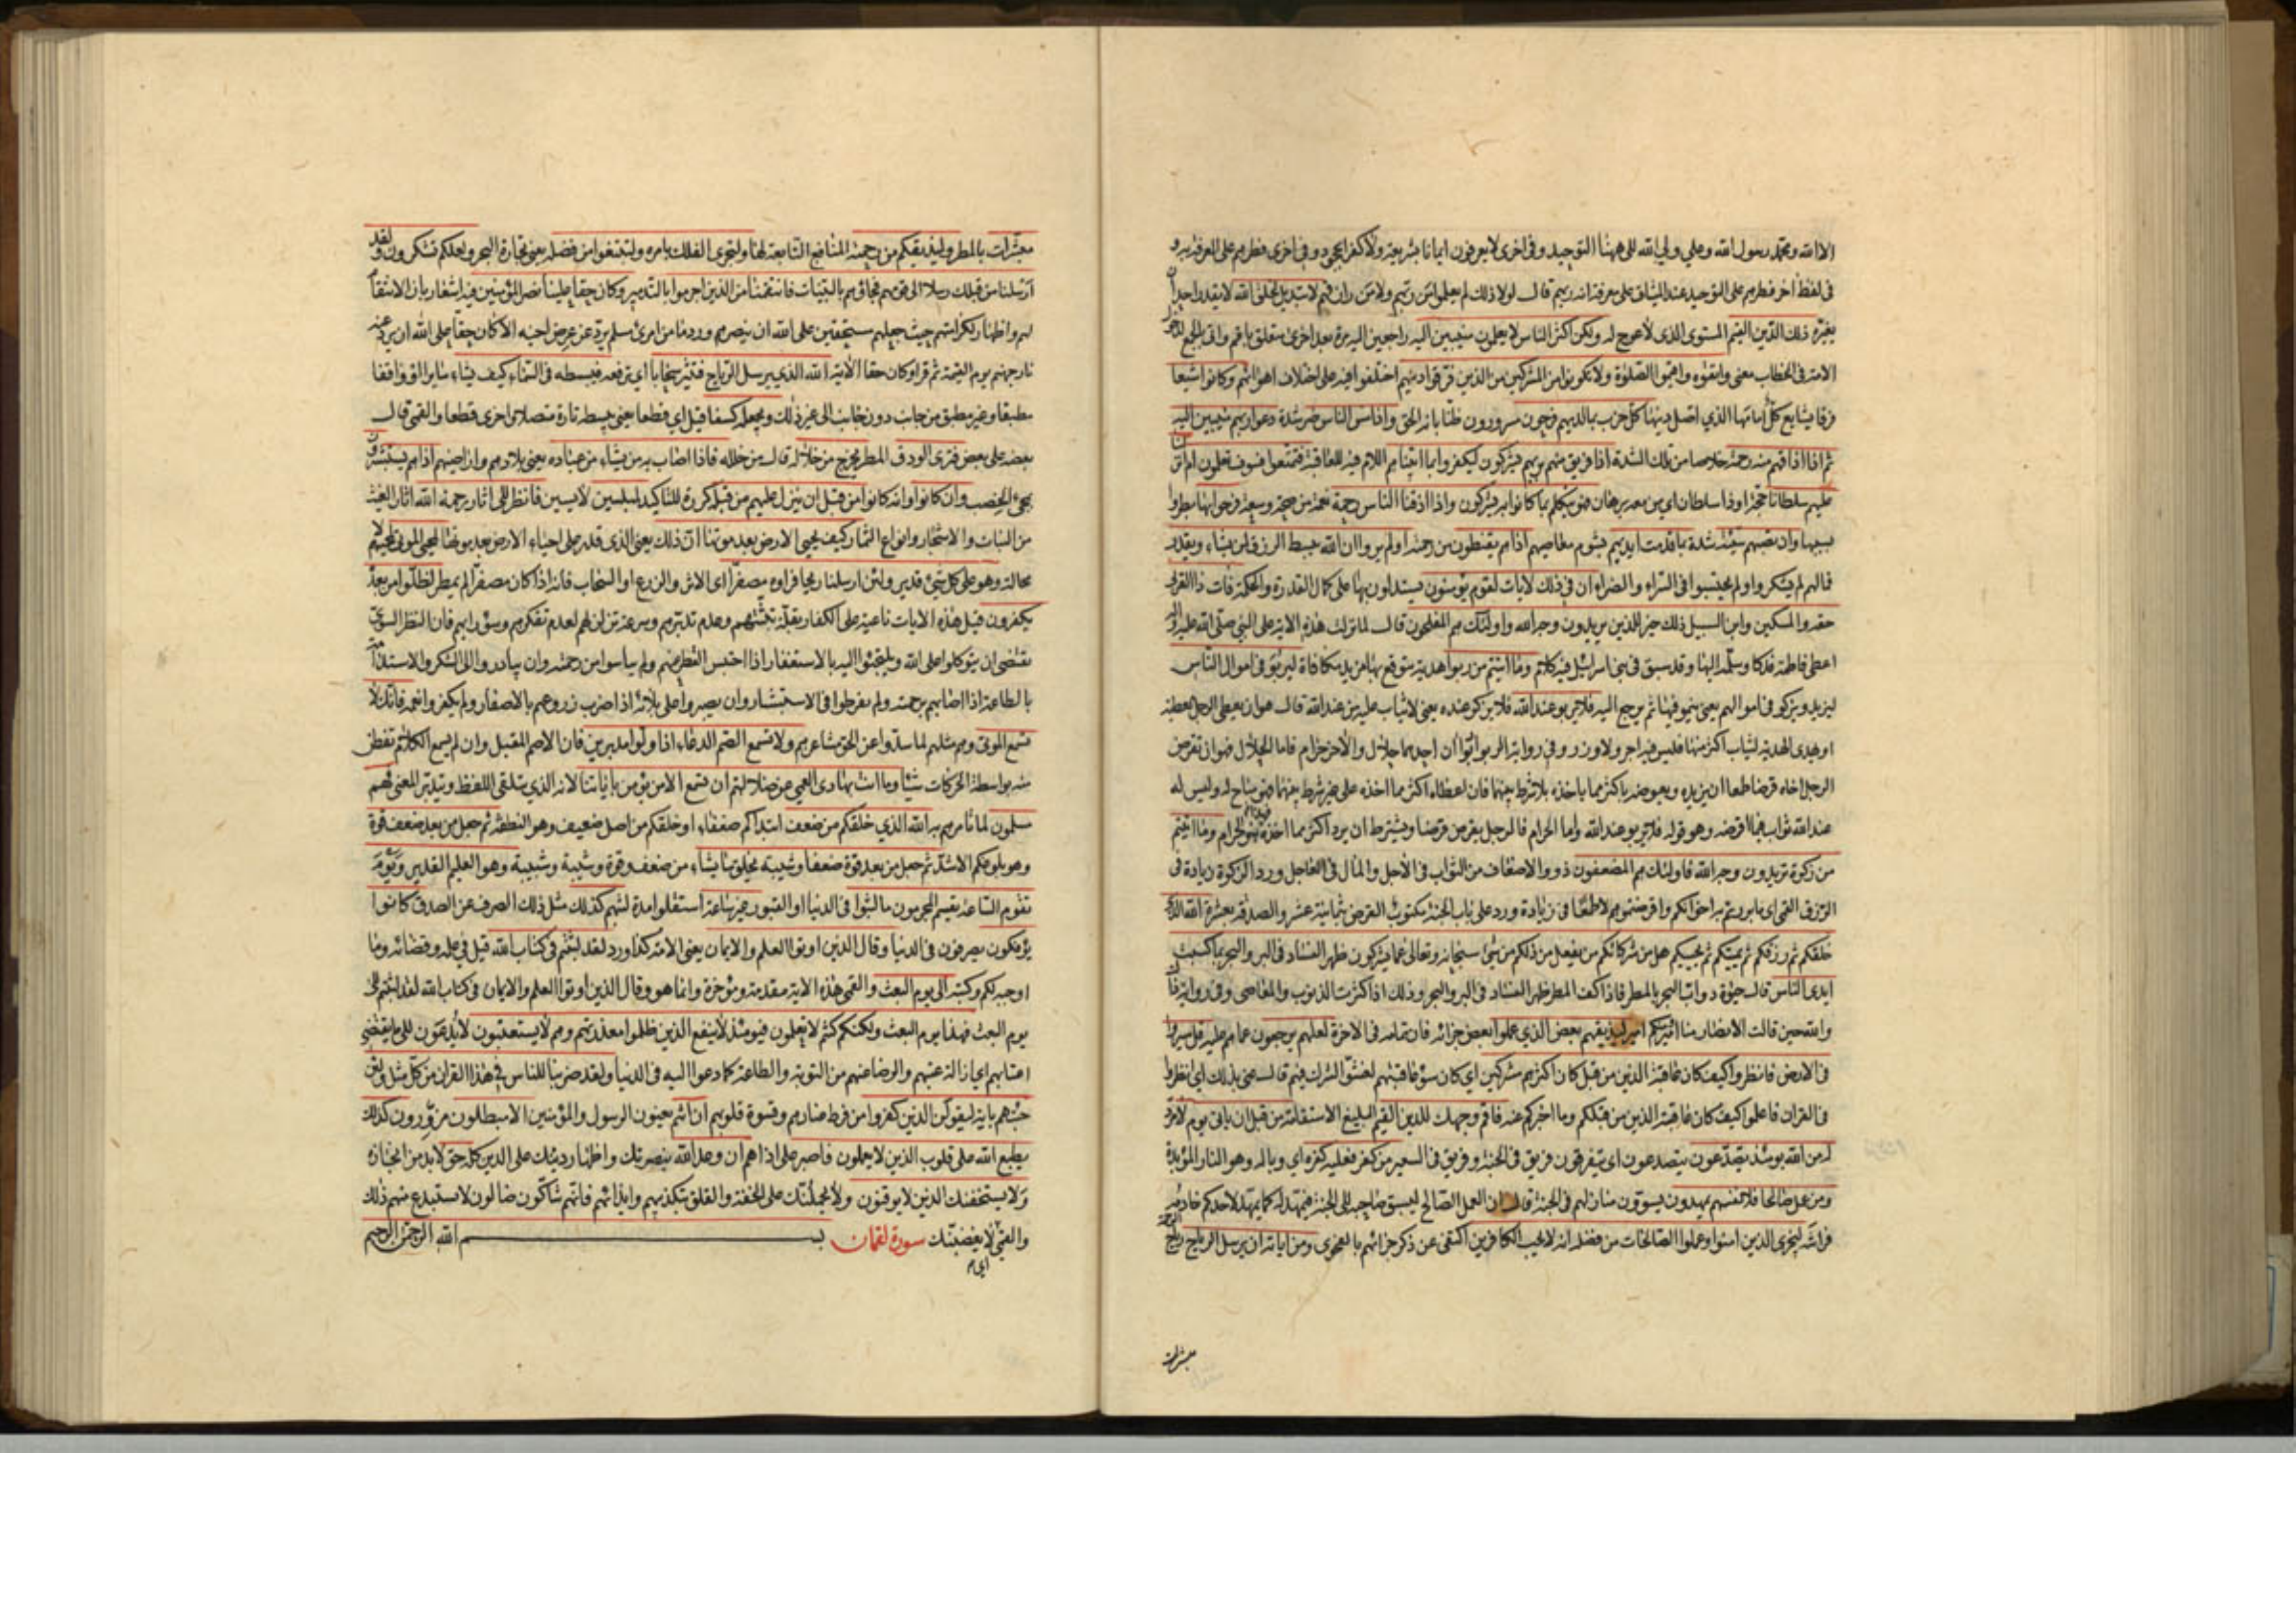 الا الله ومحمد رسول الله وعلي ولي الله الى ههنا التوحيد وفي اخرى لا يعرفون ايمانا بشريعة ولا كفرا بجحود وفي اخرى فطرهم على المعرفة به و
في لفظ اخر فطرهم على التوحيد عند الميثاق على معرفته انه ربهم قال لولا ذلك لم يعلموا من ربهم ولا من رازقهم لا تبديل لخلق الله لا يقدر احد ان
يغيره ذلك الدين القيم المستوى الذى لا عوج له ولكن اكثر الناس لا يعلمون منيبين اليه راجعين اليه مرة بعد اخرى متعلق باقم
الامة في الخطاب معنى واتقوه واقيموا الصلوة ولا تكونوا من المشركين من الذين فرقوا دينهم اختلفوا فيه على اختلاف اهوائهم وكانوا شيعا
فرقا يشايع كل امامها الذي اضل دينها كل حزب بما لديهم فرحون مسرورون ظنا بانه الحق واذا مس الناس ضر شدة دعوا ربهم منيبين اليه
ثم اذا اذاقهم منه رحمة خلاصا من تلك الشدة اذا فريق منهم بربهم يشركون ليكفروا بما اتيناهم اللام فيه للعاقبة فتمتعوا فسوف تعلمون ام انزلنا
عليهم سلطانا حجة او ذا سلطان اي من معه برهان فهو يتكلم بما كانوا به يشركون واذا اذقنا الناس رحمة نعمة من صحة وسعة فرحوا بها بطروا
بسببها وان تصبهم سيئة شدة بما قدمت ايديهم بشوم معاصيهم اذا هم يقنطون من رحمته اولم يروا ان الله يبسط الرزق لمن يشاء ويقدر
فما لهم لم يشكروا ولم يحتسبوا في السراء والضراء ان في ذلك لايات لقوم يؤمنون يستدلون بها على كمال القدرة والحكمة فات ذا القربى
حقه والمسكين وابن السبيل ذلك خير للذين يريدون وجه الله واولئك هم المفلحون قال لما نزلت هذه الاية على النبي صلى الله عليه واله
اعطى فاطمة فدكا وسلمه اليها وقد سبق في بني اسرائيل فيه كلام وما اتيتم من ربوا هدية يتوقع بها مزيد مكافاة ليربو في اموال الناس
ليزيد ويزكو في اموالهم يعنى ينمو فيها ثم يرجع اليه فلا يربو عند الله فلا يزكو عنده يعني لا يثاب عليه من عند الله قال هو ان يعطى الرجل العطية
او يهدى الهدية ليثاب اكثر منها فليس فيه اجر ولا وزر وفي رواية الربوا ربوا ان احدهما حلال والاخر حرام فاما الحلال فهو ان يقرض
الرجل اخاه قرضا طمعا ان يزيده ويعوضه باكثر مما ياخذه بلا شرط بينهما فان اعطاه اكثر مما اخذه على غير شرط بينهما فهو مباح له وليس له
عند الله ثواب فيما اقرضه وهو قوله فلا يربو عند الله واما الحرام فالرجل يقرض قرضا ويشترط ان يرد اكثر مما اخذه فهذا هو الحرام وما اتيتم
من زكوة تريدون وجه الله فاولئك هم المضعفون ذووا الاضعاف من الثواب في الاجل والمال في العاجل وورد الزكوة زيادة في
الرزق القمي اى ما بررتم به اخوانكم واقرضتموهم لا طمعا في زيادة ورد على باب الجنة مكتوب القرض بثمانية عشر والصدقة بعشرة الله الذي
خلقكم ثم رزقكم ثم يميتكم ثم يحييكم هل من شركائكم من يفعل من ذلكم من شئ سبحانه وتعالى عما يشركون ظهر الفساد في البر والبحر بما كسبت
ايدى الناس قال حيوة دواب البحر بالمطر فاذا كف المطر ظهر الفساد في البر والبحر وذلك اذا كثرت الذنوب والمعاصى وفي رواية
والله حين قالت الانصار منا امير ومنكم امير ليذيقهم بعض الذي عملوا بعض جزائه فان تمامه في الاخرة لعلهم يرجعون عما هم عليه قل سيروا
في الارض فانظروا كيف كان عاقبة الذين من قبل كان اكثرهم مشركين اي كان سوء عاقبتهم لفشو الشرك فيهم قال عنى بذلك اي انظروا
في القران فاعلموا كيف كان عاقبة الذين من قبلكم وما اخبركم عنه فاقم وجهك للدين القيم البليغ الاستقامة من قبل ان ياتى يوم لا مرد
له من الله يومئذ يصدعون يتصدعون اى يتفرقون فريق في الجنة وفريق في السعير من كفر فعليه كفره اي وباله وهو النار المؤبدة
ومن عمل صالحا فلانفسهم يمهدون يسوون منازلهم في الجنة قال ان العمل الصالح ليسبق صاحبه الى الجنة فيمهد له كما يمهد لاحدكم خادمه
فراشه ليجزى الذين امنوا وعملوا الصالحات من فضله انه لا يحب الكافرين اكتفى عن ذكر جزائهم بالفحوى ومن اياته ان يرسل الرياح رياح الرحمة
مبشرات
مبشرات بالمطر وليذيقكم من رحمته المنافع التابعة لها ولتجرى الفلك بامره ولتبتغوا من فضله يعنى تجارة البحر ولعلكم تشكرون ولقد
ارسلنا من قبلك رسلا الى قومهم فجاؤهم بالبينات فانتقمنا من الذين اجرموا بالتدمير وكان حقا علينا نصر المؤمنين فيه اشعار بان الانتقام
لهم واظهار لكرامتهم حيث جعلهم مستحقين على الله ان ينصرهم ورد ما من امرئ مسلم يرد عن عرض اخيه الا كان حقا على الله ان يرد عنه
نار جهنم يوم القيمة ثم قرا وكان حقا الاية الله الذي يرسل الرياح فتثير سحابا اي ترفعه فيبسطه في السماء كيف يشاء سائرا وواقفا
مطبقا وغير مطبق من جانب دون جانب الى غير ذلك ويجعله كسفا قيل اي قطعا يعنى يبسط تارة متصلا واخرى قطعا والقمي قال
بعضه على بعض فترى الودق المطر يخرج من خلاله قال من خلله فاذا اصاب به من يشاء من عباده يعني بلادهم واراضيهم اذا هم يستبشرون
بمجئ الخصب وان كانوا وانه كانوا من قبل ان ينزل عليهم من قبله كرره للتاكيد لمبلسين لايسين فانظر الى اثار رحمة الله اثار الغيث
من النبات والاشجار وانواع الثمار كيف يحيى الارض بعد موتها ان ذلك يعنى الذى قدر على احياء الارض بعد موتها لمحيى الموتى لمحييهم لا
محالة وهو على كل شئ قدير ولئن ارسلنا ريحا فراوه مصفرا اى الاثر والزرع او السحاب فانه اذا كان مصفرا لم يمطر لظلوا من بعده
يكفرون قيل هذه الايات ناعية على الكفار بقلة تثبتهم وعدم تدبرهم وسرعة تزلزلهم لعدم تفكرهم وسوء رايهم فان النظر السوي
يقتضى ان يتوكلوا على الله ويلتجئوا اليه بالاستغفار اذا احتبس القطر عنهم ولم يياسوا من رحمته وان يبادروا الى الشكر والاستدامة
بالطاعة اذا اصابهم برحمته ولم يفرطوا في الاستبشار وان يصبروا على بلائه اذا ضرب زروعهم بالاصفرار ولم يكفروا نعمه فانك لا
تسمع الموتى وهم مثلهم لما سدوا عن الحق مشاعرهم ولا تسمع الصم الدعاء اذا ولوا مدبرين فان الاصم المقبل وان لم يسمع الكلام تفطن
منه بواسطة الحركات شيئا وما انت بهادى العمى عن ضلالتهم ان تسمع الا من يؤمن باياتنا لانه الذى يتلقى اللفظ ويتدبر المعنى فهم
مسلمون لما تامرهم به الله الذي خلقكم من ضعف ابتداكم ضعفاء او خلقكم من اصل ضعيف وهو النطفة ثم جعل من بعد ضعف قوة
وهو بلوغكم الاشد ثم جعل من بعد قوة ضعفا وشيبة يخلق ما يشاء من ضعف وقوة وشيبة وشبيبة وهو العليم القدير ويوم
تقوم الساعة يقسم المجرمون ما لبثوا في الدنيا او القبور غير ساعة استقلوا مدة لبثهم كذلك مثل ذلك الصرف عن الصدق كانوا
يؤفكون يصرفون في الدنيا وقال الذين اوتوا العلم والايمان يعنى الائمة كذا ورد لقد لبثتم في كتاب الله قيل في علمه وقضائه وما
اوجبه لكم وكتبه الى يوم البعث والقمي هذه الاية مقدمة ومؤخرة وانما هو وقال الذين اوتوا العلم والايمان في كتاب الله لقد لبثتم الى
يوم البعث فهذا يوم البعث ولكنكم كنتم لا تعلمون فيومئذ لا ينفع الذين ظلموا معذرتهم ولا هم يستعتبون لا يدعون الى ما يقتضى
اعتابهم اي ازالة عتبهم والرضا عنهم من التوبة والطاعة كما دعوا اليه في الدنيا ولقد ضربنا للناس في هذا القران من كل مثل ولئن
جئتهم باية ليقولن الذين كفروا من فرط عنادهم وقسوة قلوبهم ان انتم يعنون الرسول والمؤمنين الا مبطلون مزورون كذلك
يطبع الله على قلوب الذين لا يعلمون فاصبر على اذاهم ان وعد الله بنصرتك واظهار دينك على الدين كله حق لا بد من انجازه
ولا يستخفنك الذين لا يوقنون ولا يحملنك على الخفة والقلق بتكذيبهم وايذائهم فانهم شاكون ضالون لا يستبدع منهم ذلك
والقمي اي لا يغضبنك سورة لقمان بسم الله الرحمن الرحيم